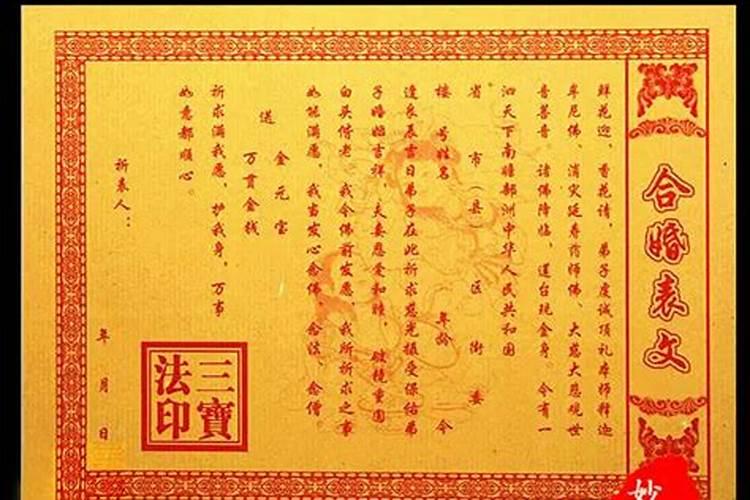 合婚表文
鲜花迎，香花请，弟子虔诚顶礼本师释迦
牟尼佛、消灾延寿药师佛、大慈大悲观世
音菩音。诸佛降临，莲台现金身。今有一
泗天下南瞻部洲中华人民共和国
省 市（县） 区 街 委
楼 号姓名 年龄 今
逢良辰吉日弟子在此祈求慈光摄受保佑弟
子婚姻吉祥，夫妻恩爱和睦，破镜重圆
白头偕老。我今佛前发愿，我所祈求之事
如能满愿，我当发心念佛、念法、念僧。
送 金元宝
万贯金钱
祈求满我愿，护我身，万事
如意都顺心。
祈表人：
年 月 日
三寶
法印
妙